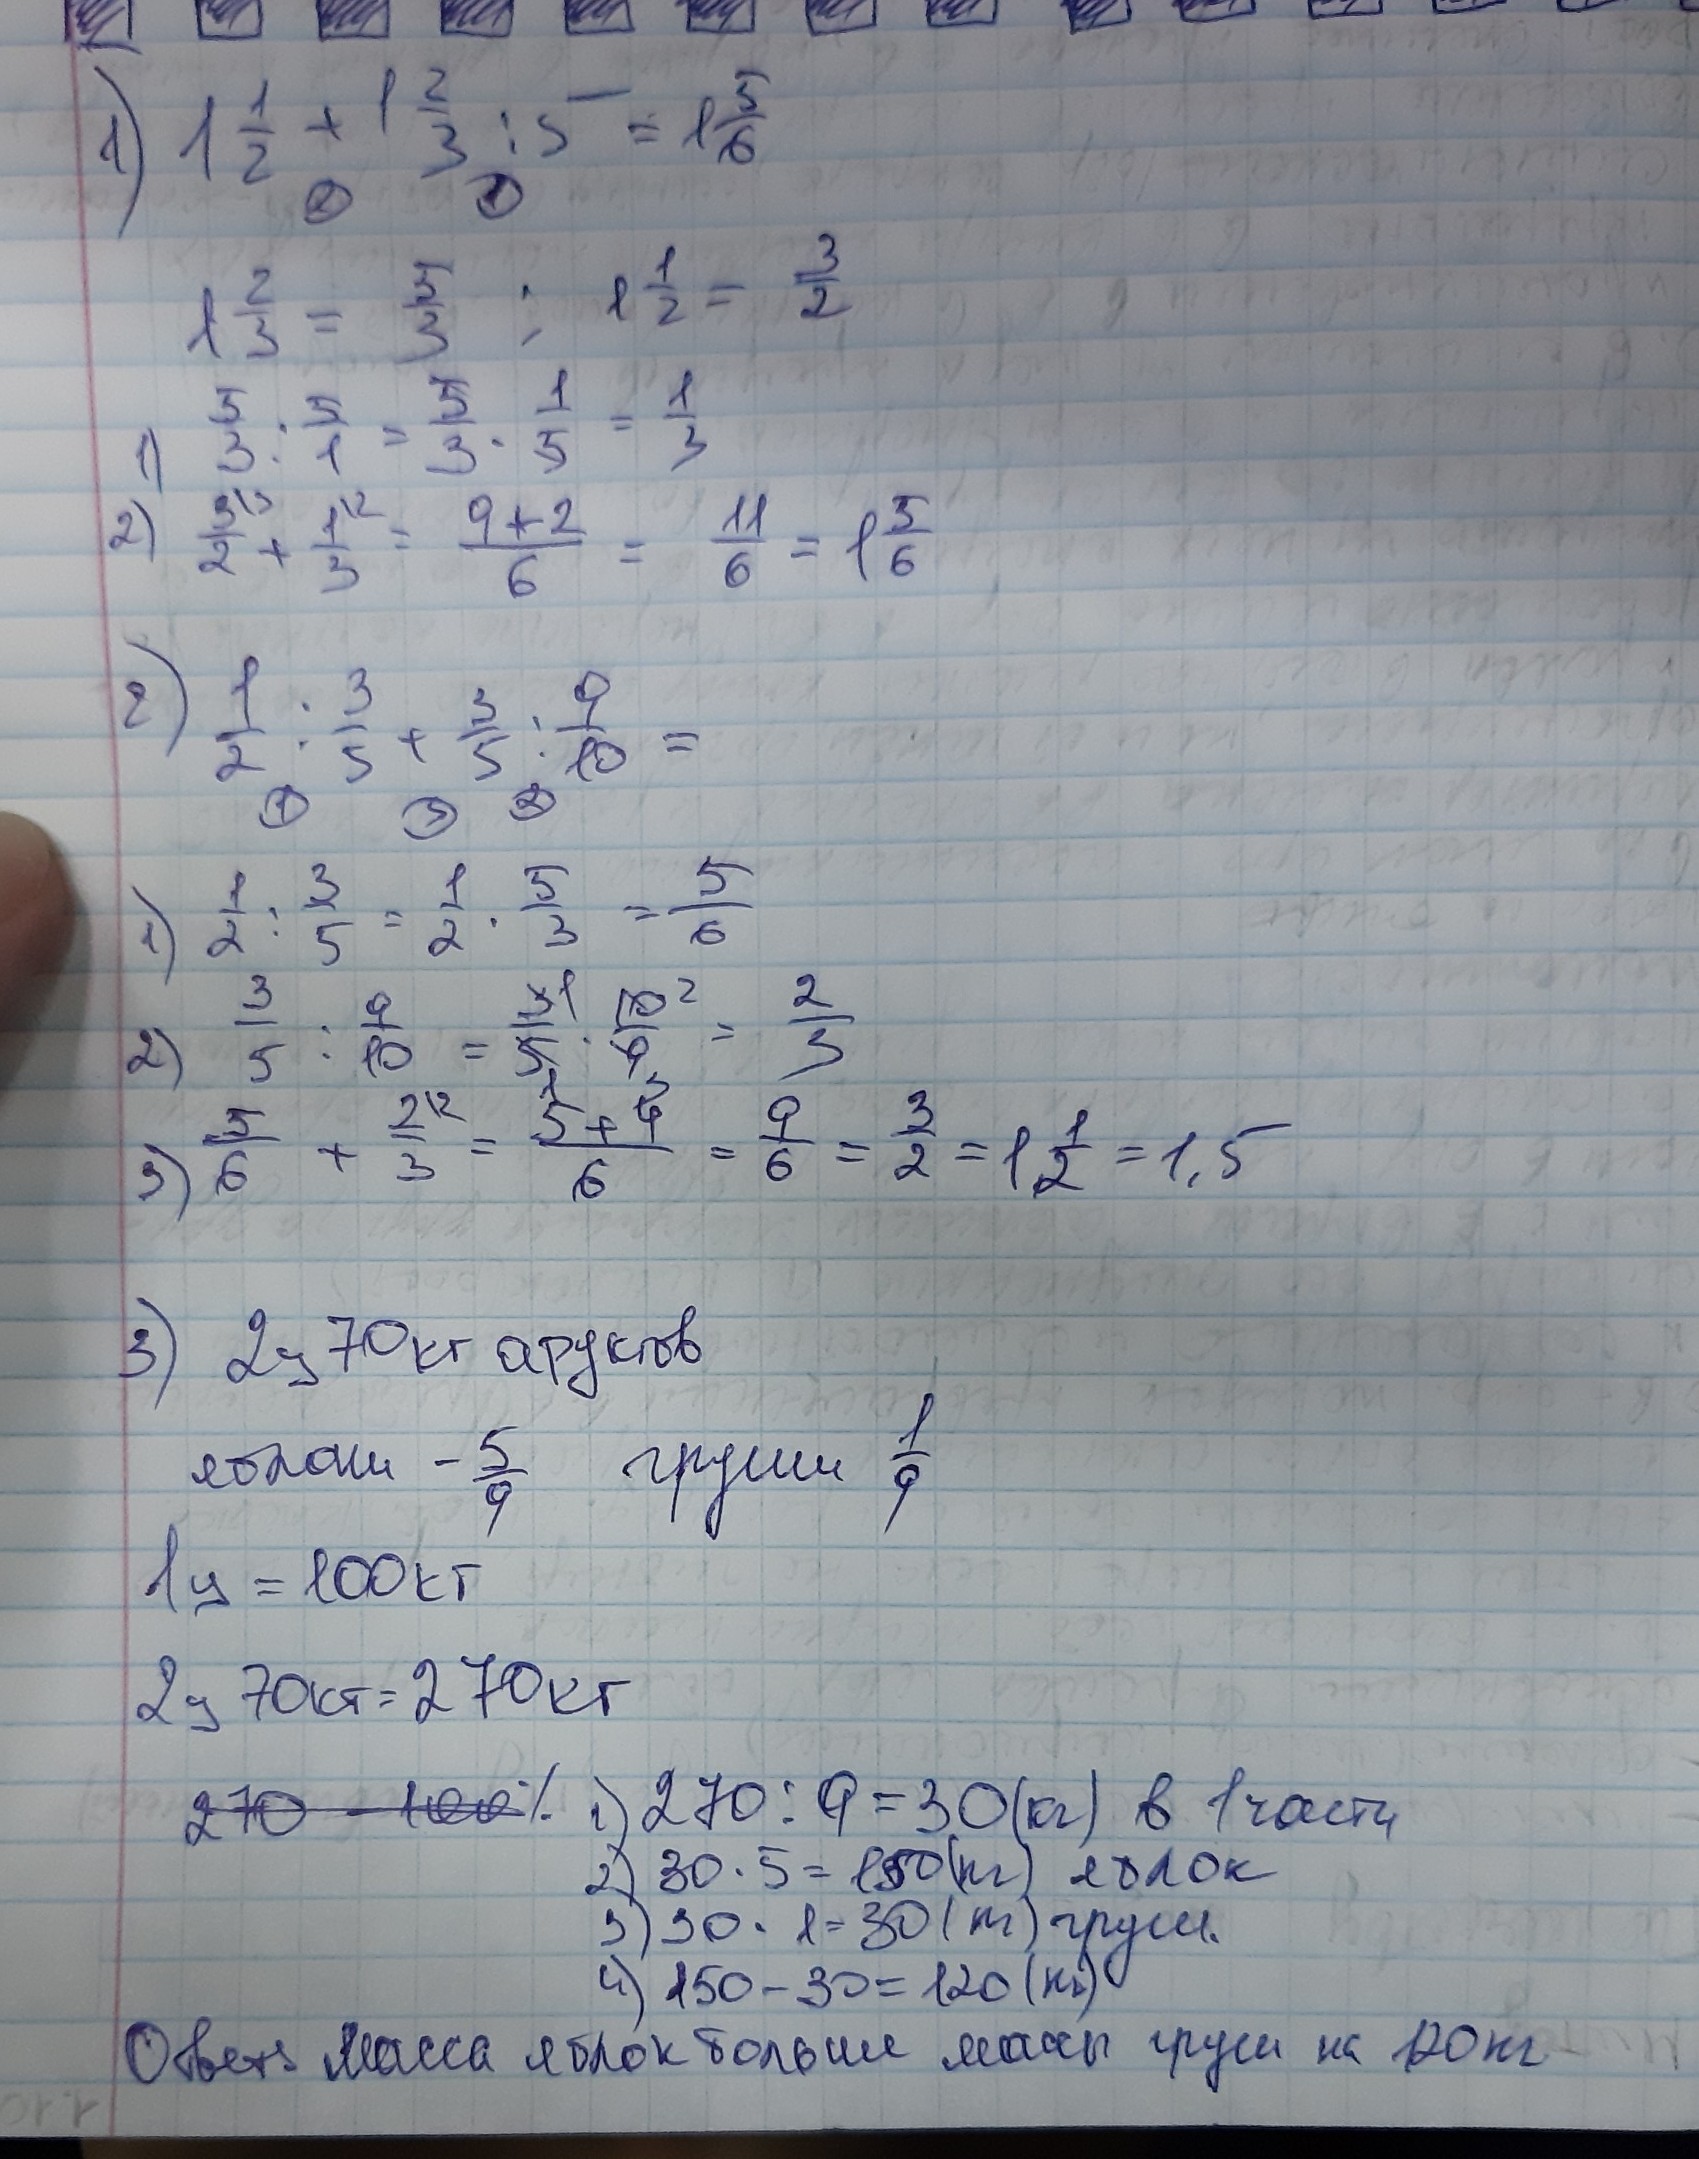 1) 1 1/2 + 1 2/3 : 5 = 1 5/6
② ①
1 2/3 = 5/3 ; 1 1/2 = 3/2
1) 5/3 : 5/1 = 5/3 · 1/5 = 1/3
2) 3\3/2 + 1\2/3 = 9+2/6 = 11/6 = 1 5/6
2) 1/2 : 3/5 + 3/5 : 9/10 =
① ③ ②
1) 1/2 : 3/5 = 1/2 · 5/3 = 5/6
2) 3/5 : 9/10 = 3 1/5 1 · 10 2/9 3 = 2/3
3) 5/6 + 2\2/3 = 5+4/6 = 9/6 = 3/2 = 1 1/2 = 1,5
3) 2ц 70кг фруктов
яблоки - 5/9 груши 1/9
1ц = 100кг
2ц 70кг = 270кг
270 - 100% 1) 270 : 9 = 30(кг) в 1 части
2) 30 · 5 = 150(кг) яблок
3) 30 · 1 = 30(кг) груш.
4) 150 - 30 = 120(кг)
Ответ: Масса яблок больше массы груш на 120кг